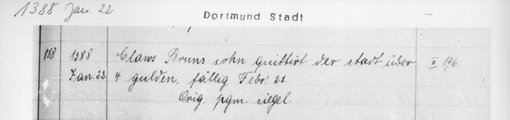 1388 Jan. 22
Dortmund Stadt
188 1388 Claws Bruns sohn quittirt der stadt über II 196
Jan. 22. 4 gulden, fällig Febr. 22.
Orig. pgm. siegel.